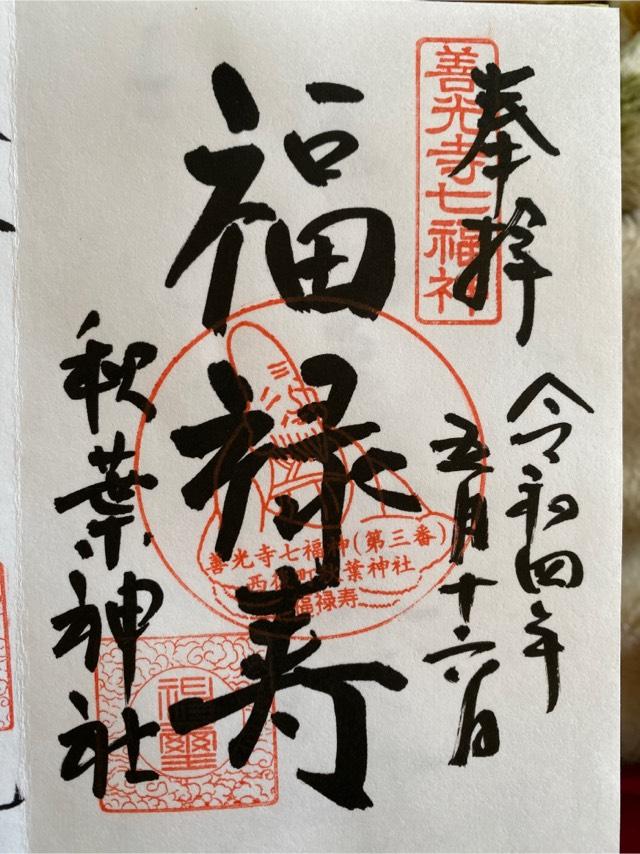 奉拝
善光寺七福神
令和四年
五月十六日
福禄寿
善光寺七福神(第三番)
西後町秋葉神社
福禄寿
秋葉神社